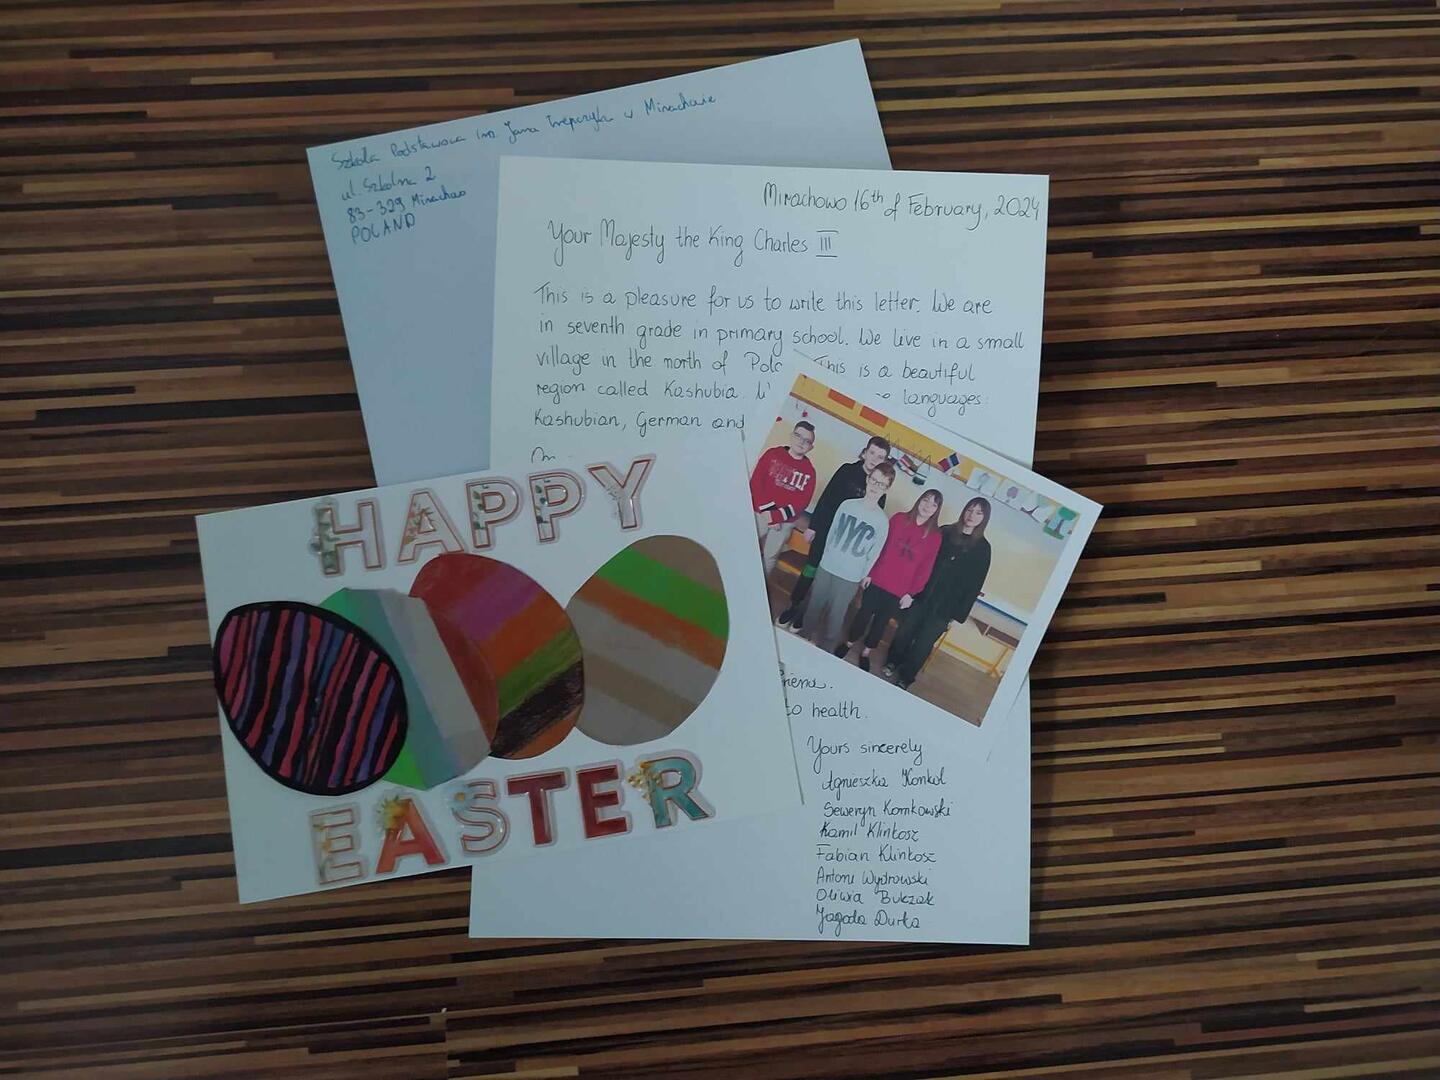 Szkoła Podstawowa im. Jana Trepczyka w Mirachowie
ul. Szkolna 2
83-329 Mirachowo
POLAND
Mirachowo 16th of February, 2024
Your Majesty the King Charles III
This is a pleasure for us to write this letter. We are
in seventh grade in primary school. We live in a small
village in the north of Pola This is a beautiful
region called Kashubia. languages:
Kashubian, German and
HAPPY
EASTER
NYC
to health.
Yours sincerely
Agnieszka Konkol
Seweryn Komkowski
Kamil Klinkosz
Fabian Klinkosz
Antoni Wydrowski
Oliwia Bukzak
Jagoda Durka